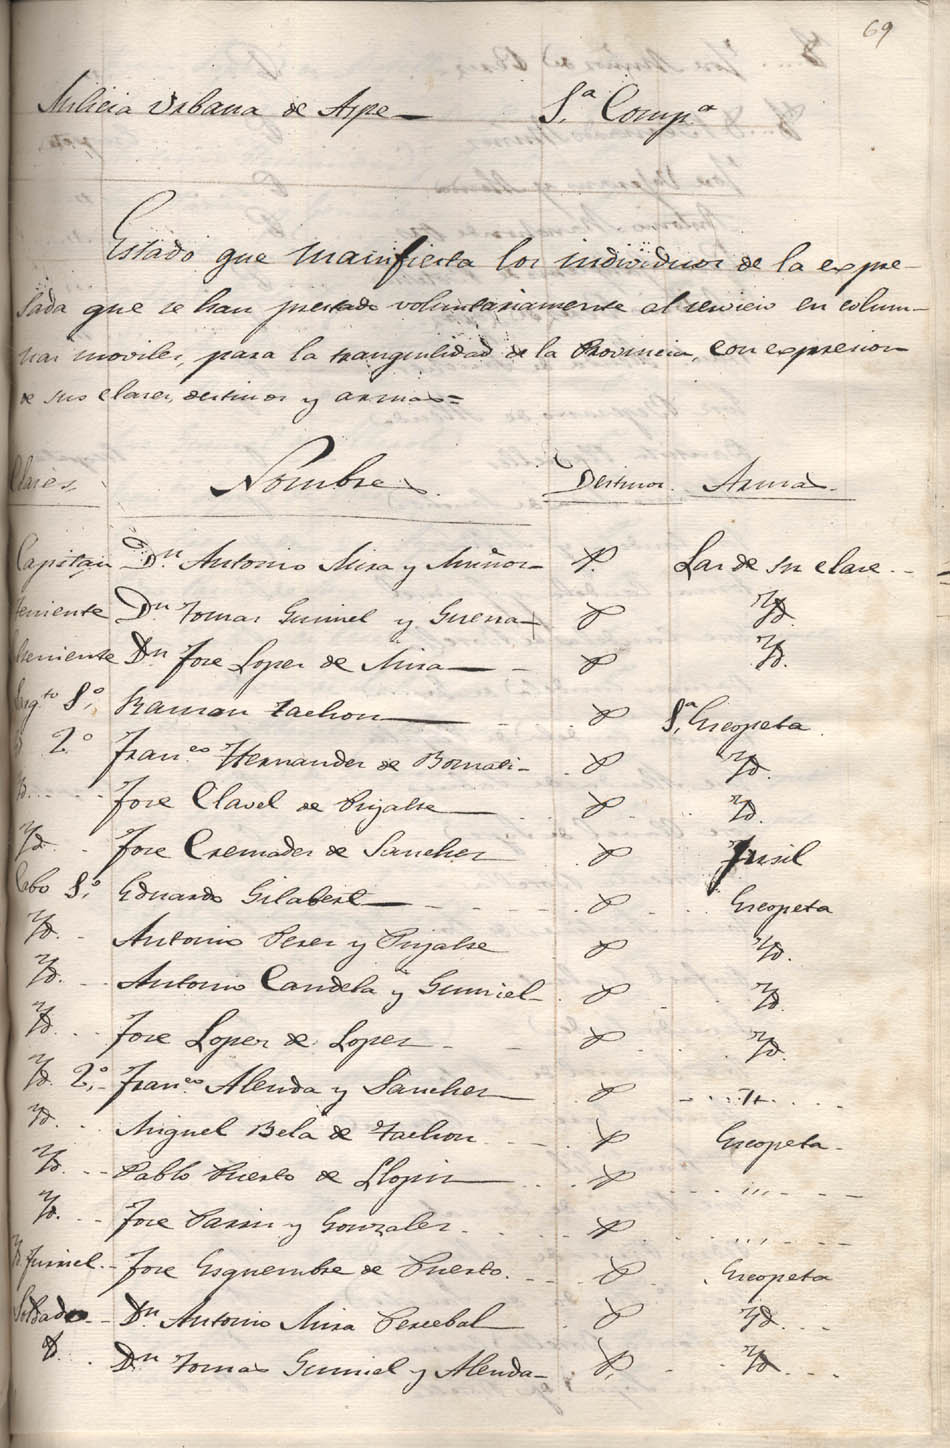 69
Milicia Urbana de Aspe S.a Comp.a
Estado que manifiesta los individuos de la expre-
sada que se han prestado voluntariamente al servicio en colum-
nas moviles, para la tranquilidad de la Provincia, con expresion
de sus clases, destinos y armas=
Clases Nombres Destinos Armas
Capitan Dn Antonio Mira y Muñoz P. Las de su clase
Teniente Dn Tomas Gumiel y Guerra P Yd.
Dn Jose Lopez de Mira P Yd.
Sarg.to Ramon Tachon P Escopeta
2º Fran.co Hernandez de P Yd.
Yd. Jose Clavel de P Yd.
Yd. Jose Cremades de Sanchez P Fusil
Cabo Eduardo Gilabert P Escopeta
Yd. Antonio Perez y P Yd.
Yd. Antonio Candela y Gumiel P Yd.
Yd. Jose Lopez de Lopez P Yd.
Yd. 2.º Fran.co Alenda y Sanchez P
Yd. Miguel Bela de Tachon P Escopeta
Yd. Pablo Puerto de Llopis P ,,,
Yd. Jose y Gonzalez P ,,,
Jose Esquembre de Puerto P Escopeta
Soldado Dn Antonio Mira Percebal P Yd.
Yd. Dn Tomas Gumiel y Alenda P. Yd.